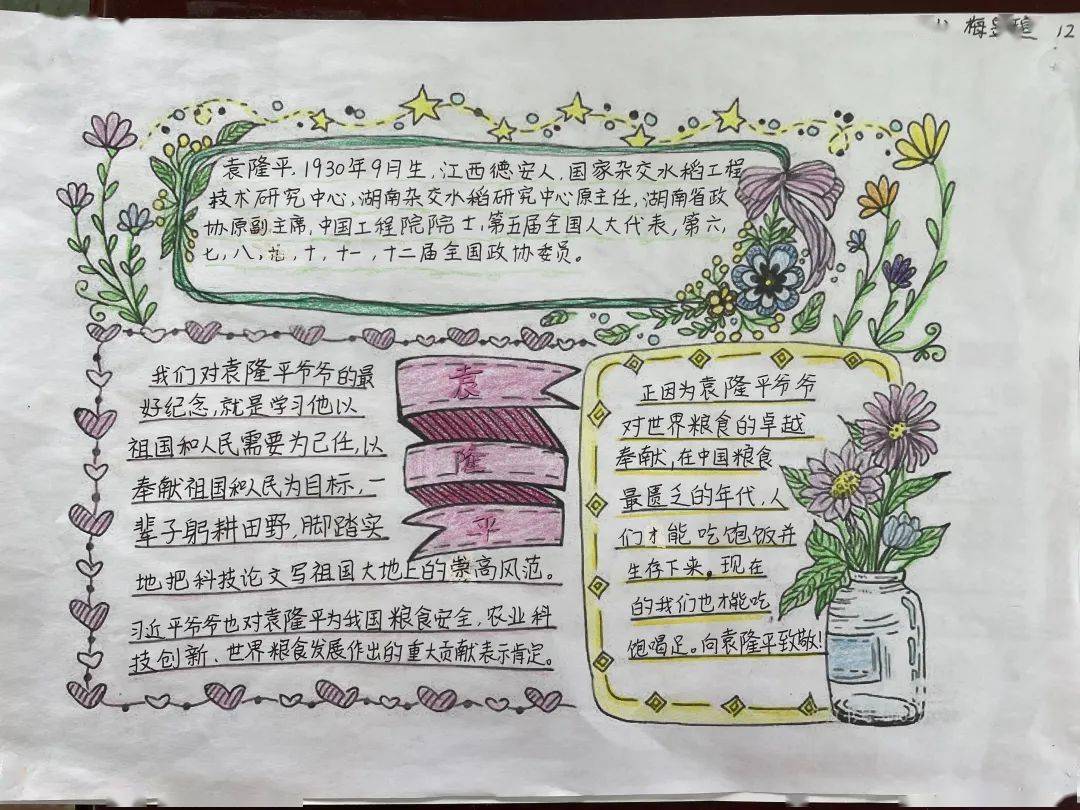 梅
12
袁隆平，1930年9月生，江西德安人，国家杂交水稻工程
技术研究中心，湖南杂交水稻研究中心原主任，湖南省政
协原副主席，中国工程院院士，第五届全国人大代表，第六，
七，八，九，十，十一，十二届全国政协委员。
我们对袁隆平爷爷的最
好纪念，就是学习他以
祖国和人民需要为己任，以
奉献祖国和人民为目标，一
辈子躬耕田野，脚踏实
地把科技论文写祖国大地上的崇高风范。
习近平爷爷也对袁隆平为我国粮食安全，农业科
技创新、世界粮食发展作出的重大贡献表示肯定。
袁
隆
平
正因为袁隆平爷爷
对世界粮食的卓越
奉献，在中国粮食
最匮乏的年代，人
们才能吃饱饭并
生存下来。现在
的我们也才能吃
饱喝足。向袁隆平致敬！